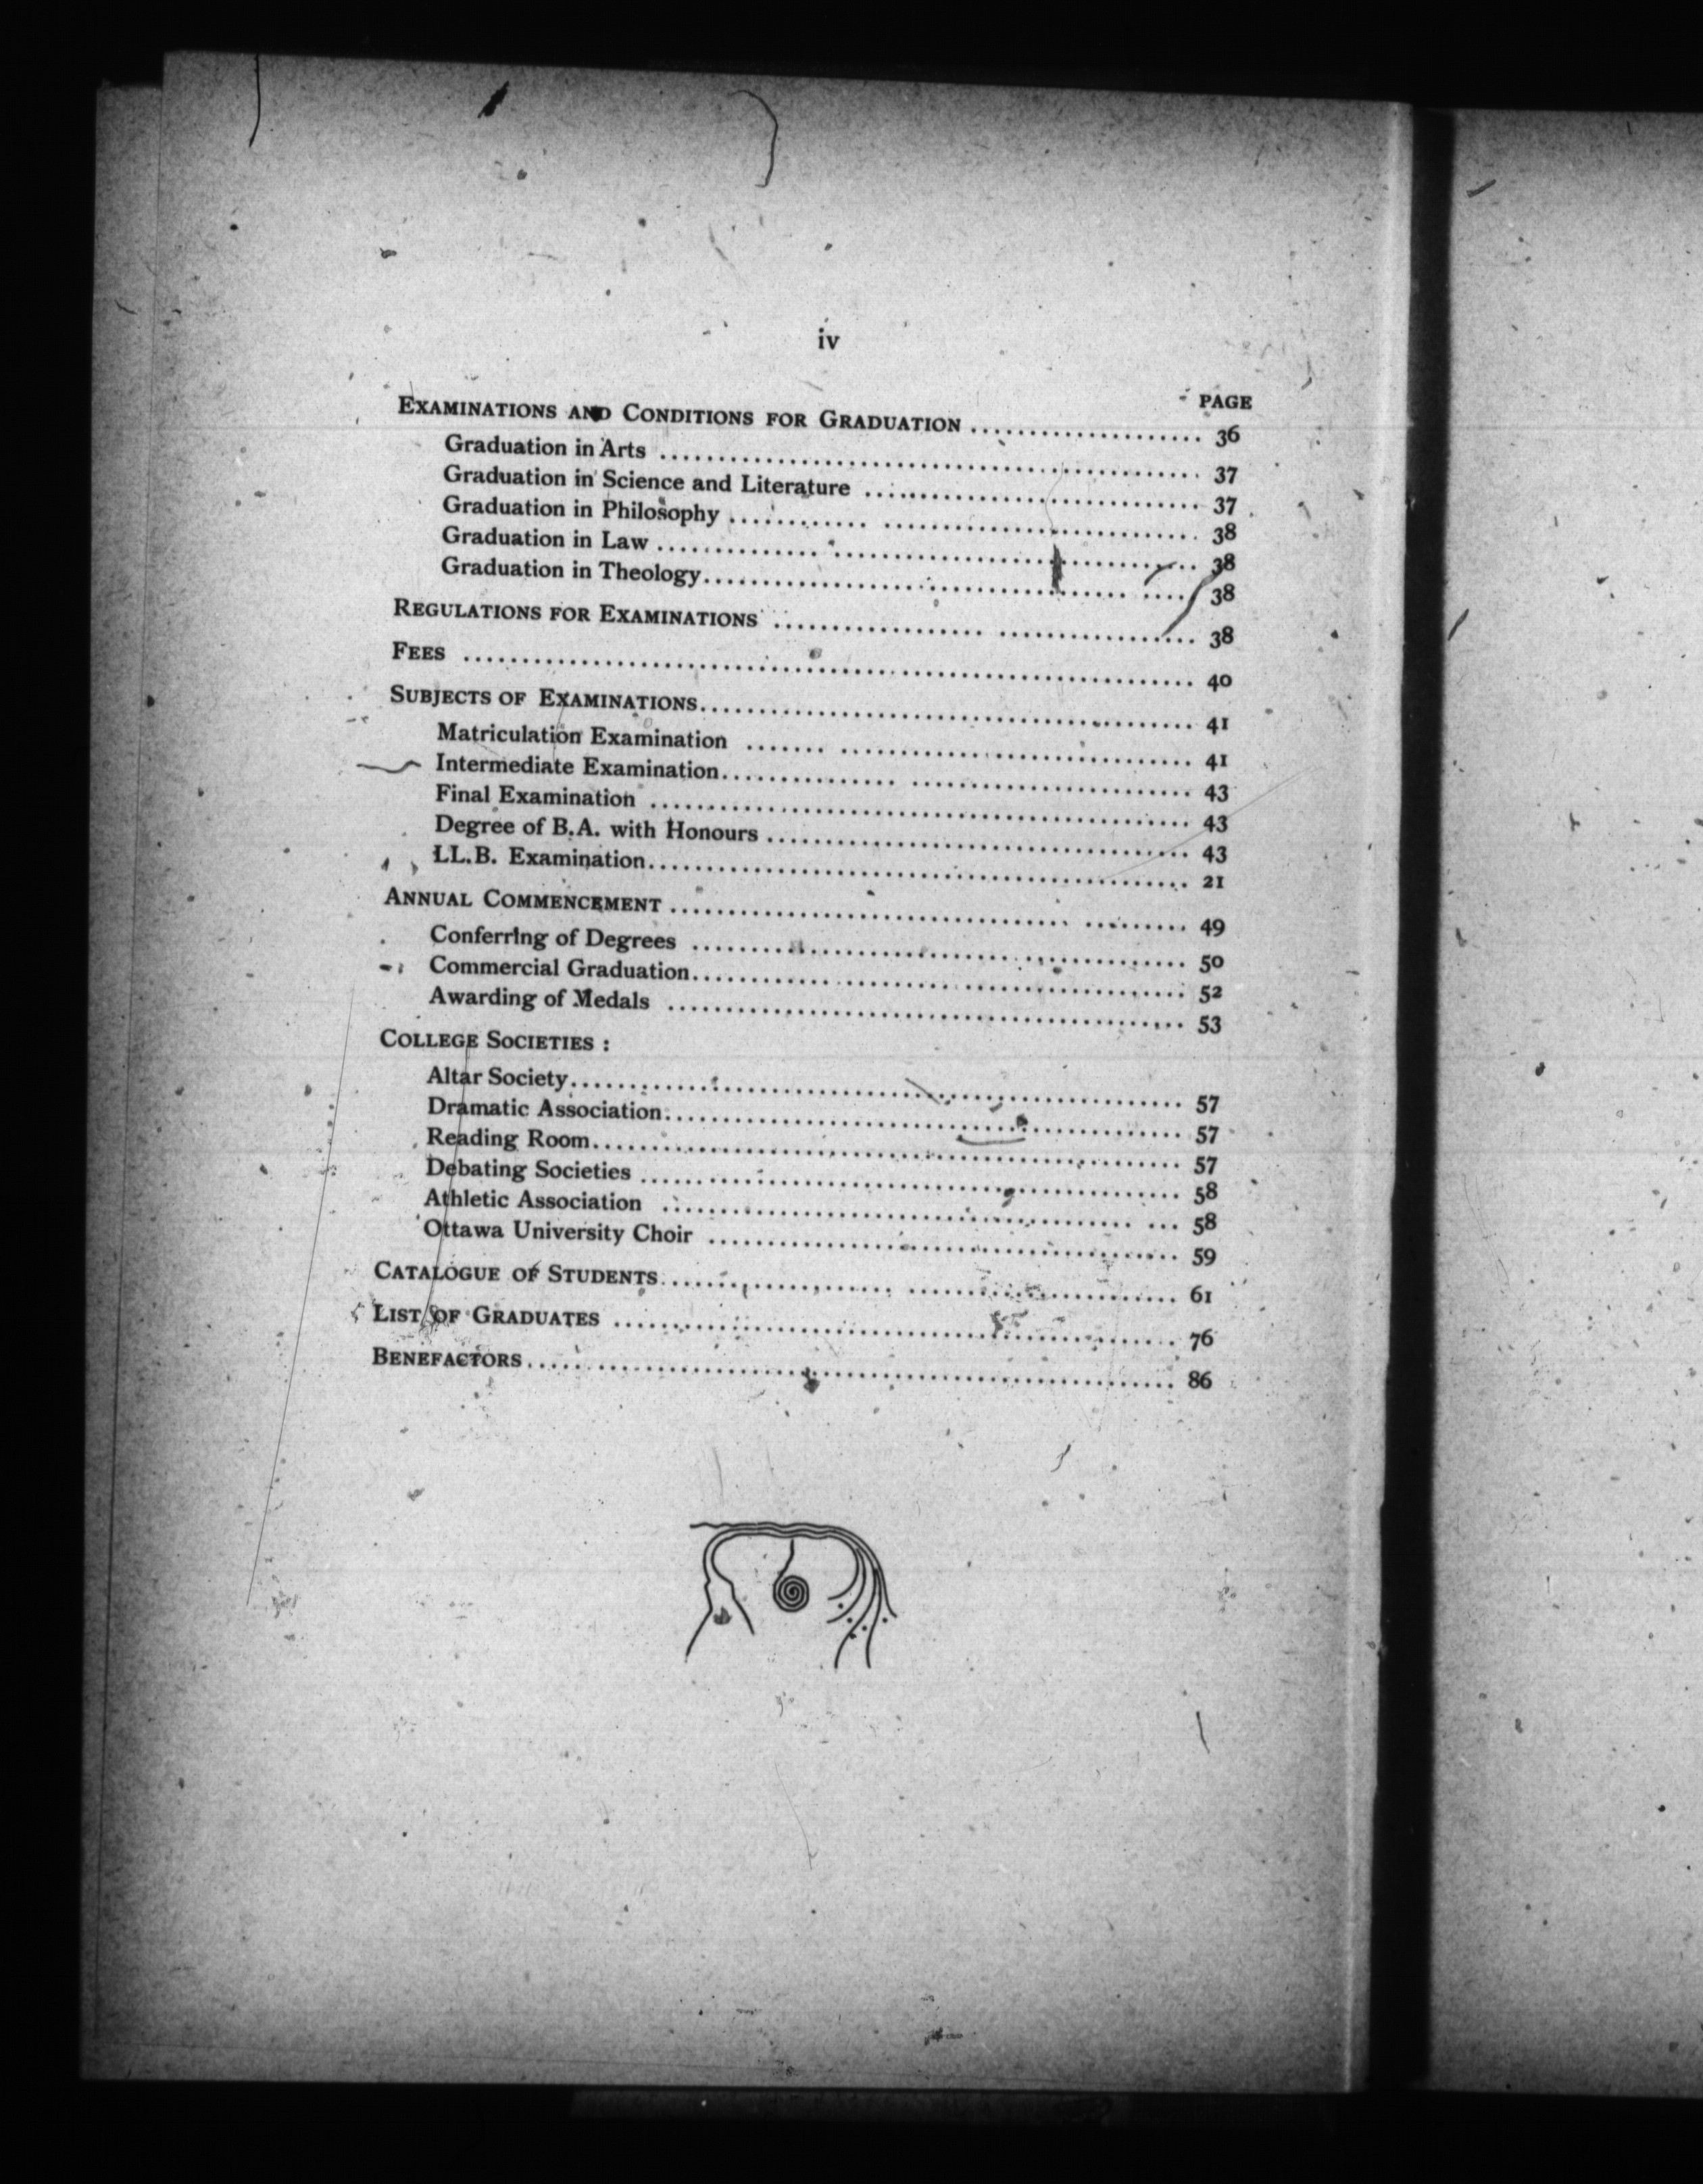 iv
PAGE
EXAMINATIONS AND CONDITIONS FOR GRADUATION .................... 36
Graduation in Arts .................... 37
Graduation in Science and Literature .................... 37
Graduation in Philosophy .................... 38
Graduation in Law .................... 38
Graduation in Theology.................... 38
REGULATIONS FOR EXAMINATIONS .................... 38
FEES .................... 40
SUBJECTS OF EXAMINATIONS.................... 41
Matriculation Examination .................... 41
Intermediate Examination.................... 43
Final Examination .................... 43
Degree of B.A. with Honours .................... 43
LL.B. Examination.................... 21
ANNUAL COMMENCEMENT .................... 49
Conferring of Degrees .................... 50
Commercial Graduation.................... 52
Awarding of Medals .................... 53
COLLEGE SOCIETIES :
Altar Society.................... 57
Dramatic Association.................... 57
Reading Room.................... 57
Debating Societies .................... 58
Athletic Association .................... 58
Ottawa University Choir .................... 59
CATALOGUE OF STUDENTS.................... 61
LIST OF GRADUATES .................... 76
BENEFACTORS.................... 86